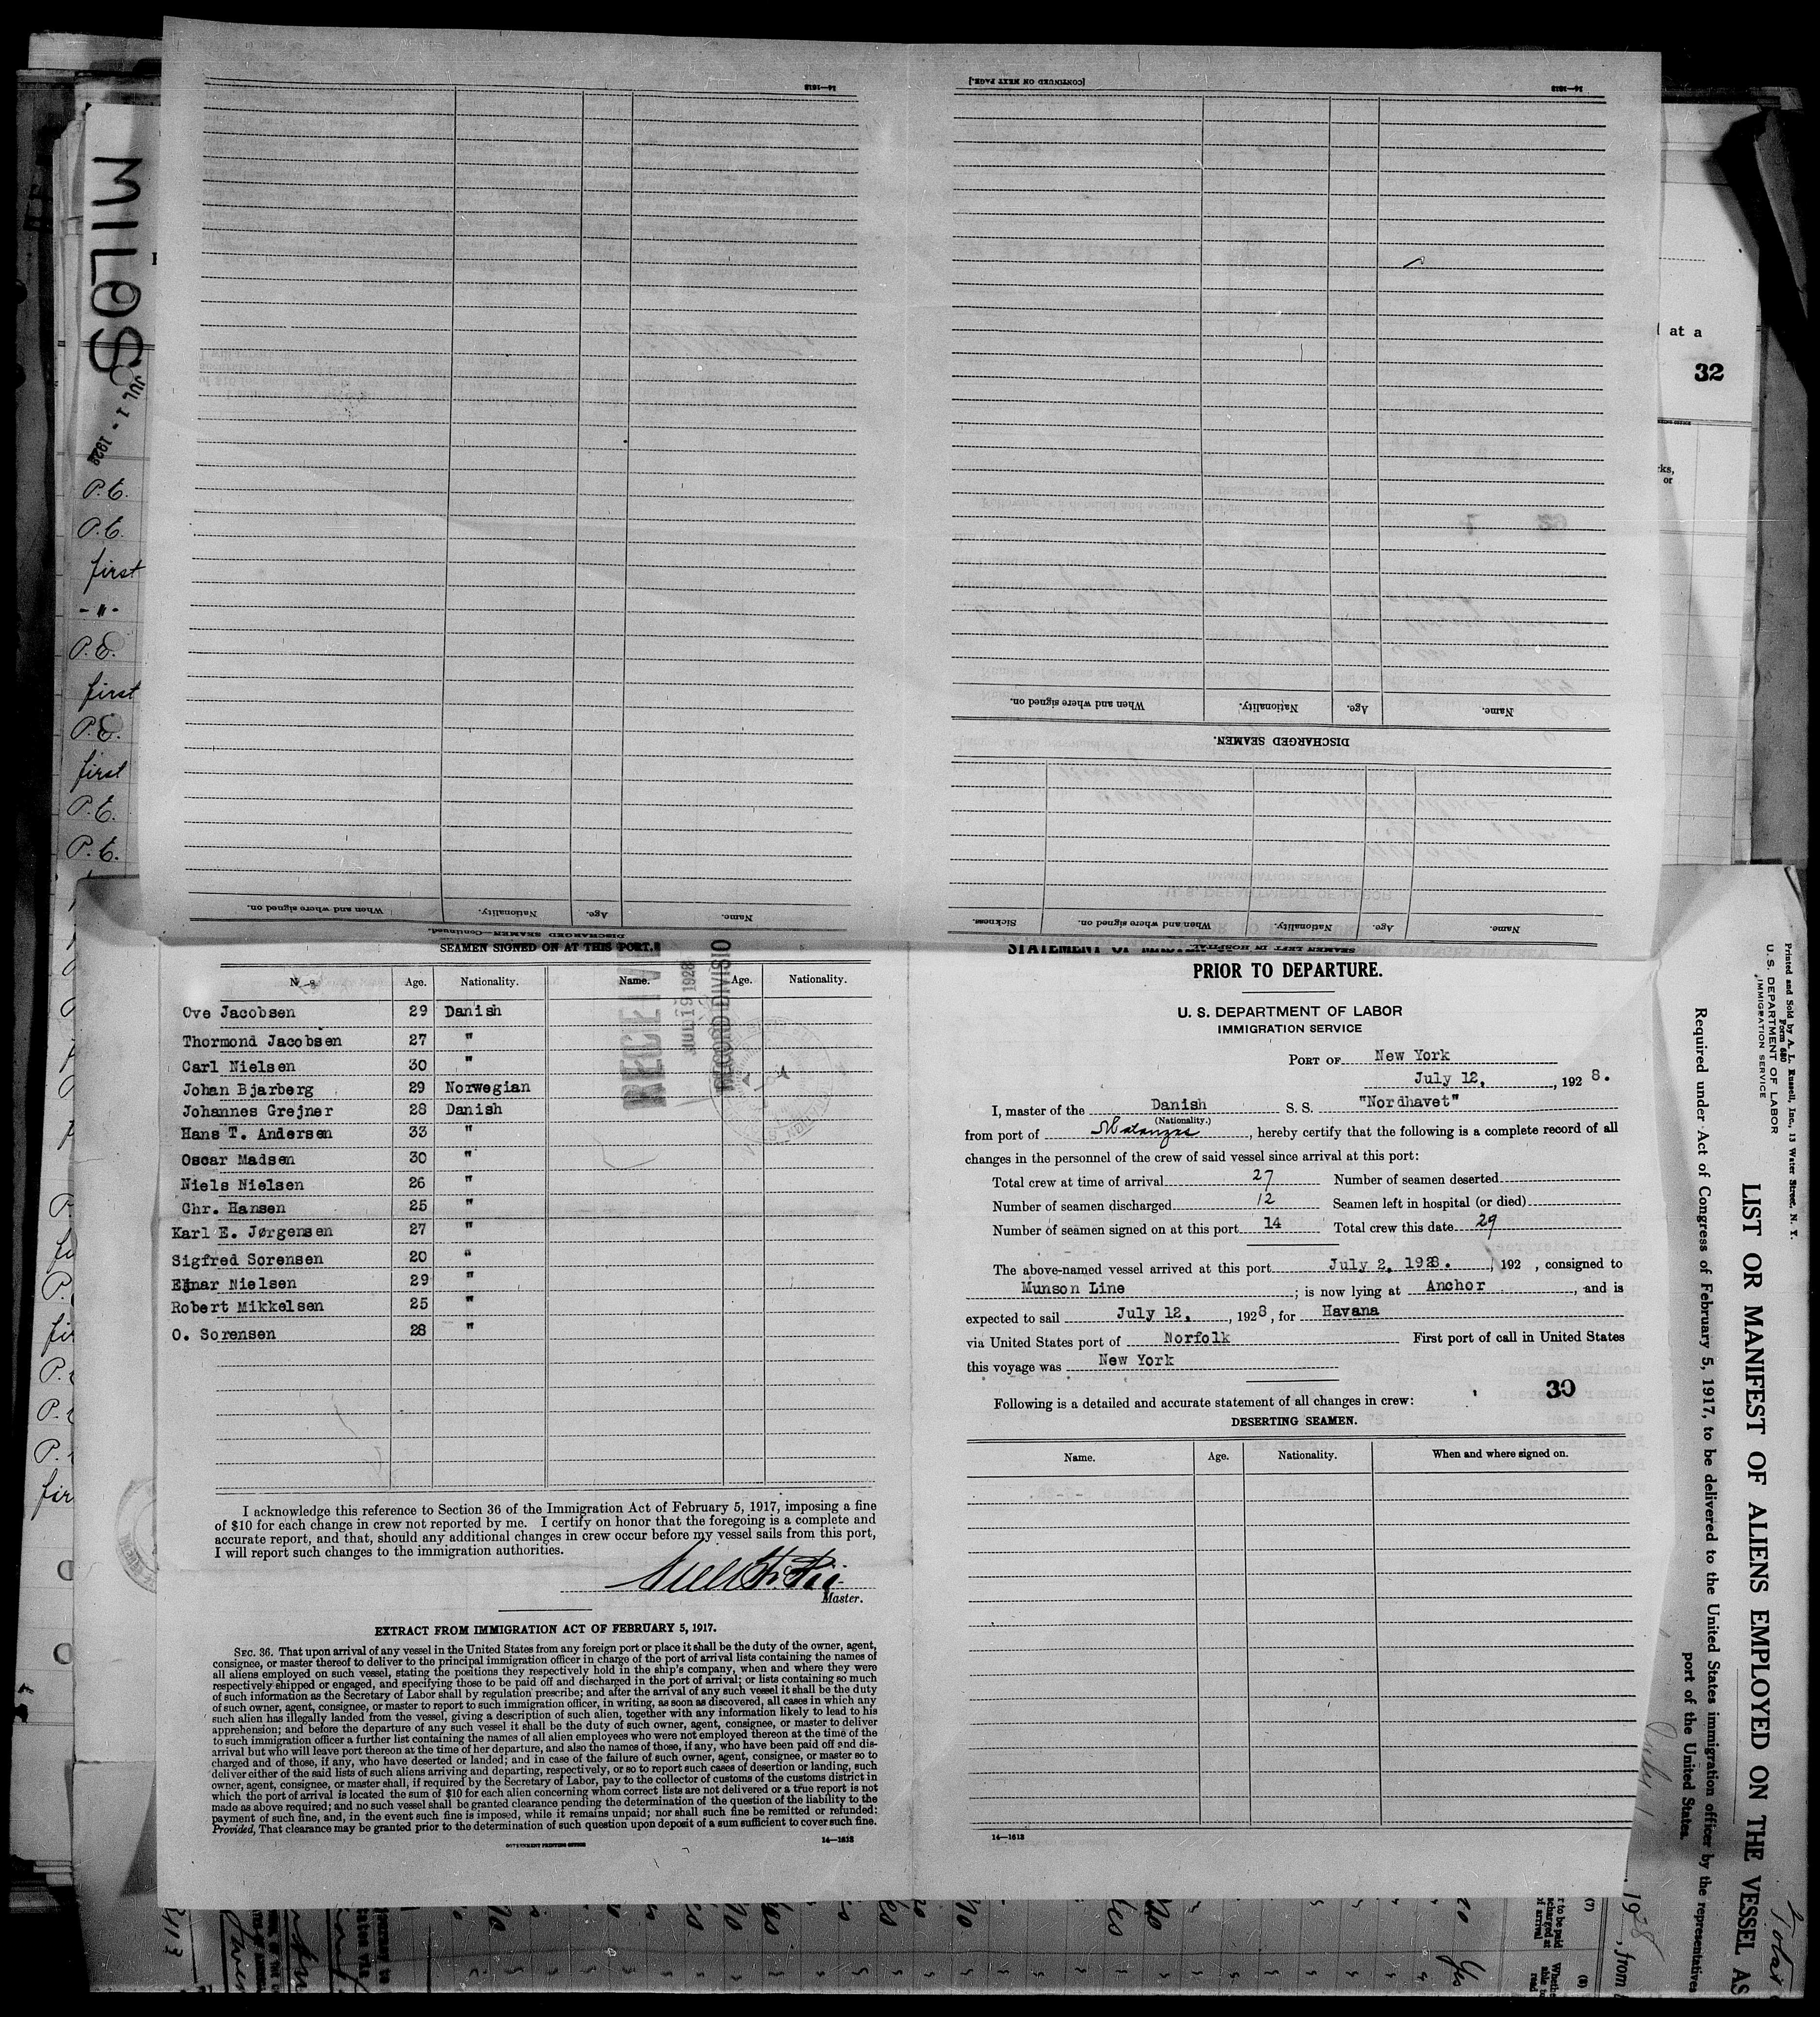 14—1613
[CONTINUED ON NEXT PAGE.]
14—1613
MILOS
JUL 1 - 1928
P.E.
P.E.
first
-"-
P.E.
first
P.E.
first
P.E.
P.E.
at a
32
When and where signed on. Nationality. Age. Name.
DISCHARGED SEAMEN.
Sickness. When and where signed on. Nationality. Age. Name.
SEAMEN LEFT IN HOSPITAL
When and where signed on. Nationality. Age. Name.
DISCHARGED SEAMEN—Continued.
SEAMEN SIGNED ON AT THIS PORT.
Age. Nationality. Name. Age. Nationality.
RECEIVE
JUL 19 1928
RECORD DIVISIO
Ove Jacobsen 29 Danish
Thormond Jacobsen 27 "
Carl Nielsen 30 "
Johan Bjarberg 29 Norwegian
Johannes Grejner 28 Danish
Hans T. Andersen 33 "
Oscar Madsen 30 "
Niels Nielsen 26 "
Chr. Hansen 25 "
Karl E. Jørgensen 27 "
Sigfred Sorensen 20 "
Ejnar Nielsen 29 "
Robert Mikkelsen 25 "
O. Sorensen 28 "
I acknowledge this reference to Section 36 of the Immigration Act of February 5, 1917, imposing a fine
of $10 for each change in crew not reported by me. I certify on honor that the foregoing is a complete and
accurate report, and that, should any additional changes in crew occur before my vessel sails from this port,
I will report such changes to the immigration authorities.
Master.
EXTRACT FROM IMMIGRATION ACT OF FEBRUARY 5, 1917.
SEC. 36. That upon arrival of any vessel in the United States from any foreign port or place it shall be the duty of the owner, agent,
consignee, or master thereof to deliver to the principal immigration officer in charge of the port of arrival lists containing the names of
all aliens employed on such vessel, stating the positions they respectively hold in the ship's company, when and where they were
respectively shipped or engaged, and specifying those to be paid off and discharged in the port of arrival; or lists containing so much
of such information as the Secretary of Labor shall by regulation prescribe; and after the arrival of any such vessel it shall be the duty
of such owner, agent, consignee, or master to report to such immigration officer, in writing, as soon as discovered, all cases in which any
such alien has illegally landed from the vessel, giving a description of such alien, together with any information likely to lead to his
apprehension; and before the departure of any such vessel it shall be the duty of such owner, agent, consignee, or master to deliver
to such immigration officer a further list containing the names of all alien employees who were not employed thereon at the time of the
arrival but who will leave port thereon at the time of her departure, and also the names of those, if any, who have been paid off and dis-
charged and of those, if any, who have deserted or landed; and in case of the failure of such owner, agent, consignee, or master so to
deliver either of the said lists of such aliens arriving and departing, respectively, or so to report such cases of desertion or landing, such
owner, agent, consignee, or master shall, if required by the Secretary of Labor, pay to the collector of customs of the customs district in
which the port of arrival is located the sum of $10 for each alien concerning whom correct lists are not delivered or a true report is not
made as above required; and no such vessel shall be granted clearance pending the determination of the question of the liability to the
payment of such fine, and, in the event such fine is imposed, while it remains unpaid; nor shall such fine be remitted or refunded:
Provided, That clearance may be granted prior to the determination of such question upon deposit of a sum sufficient to cover such fine.
GOVERNMENT PRINTING OFFICE
14—1613
STATEMENT OF MASTER
PRIOR TO DEPARTURE.
U. S. DEPARTMENT OF LABOR
IMMIGRATION SERVICE
PORT OF New York
July 12, , 192 8.
I, master of the Danish S. S. "Nordhavet"
(Nationality.)
from port of Matanzas , hereby certify that the following is a complete record of all
changes in the personnel of the crew of said vessel since arrival at this port:
Total crew at time of arrival 27 Number of seamen deserted
Number of seamen discharged 12 Seamen left in hospital (or died)
Number of seamen signed on at this port 14 Total crew this date 29
The above-named vessel arrived at this port July 2, 1928. , 192 , consigned to
Munson Line ; is now lying at Anchor , and is
expected to sail July 12, , 1928, for Havana
via United States port of Norfolk First port of call in United States
this voyage was New York
30
Following is a detailed and accurate statement of all changes in crew:
DESERTING SEAMEN.
Name. Age. Nationality. When and where signed on.
14—1613
Printed and Sold by A. L. Russell, Inc., 13 Water Street, N. Y.
Form 680
U. S. DEPARTMENT OF LABOR
IMMIGRATION SERVICE
LIST OR MANIFEST OF ALIENS EMPLOYED ON THE VESSEL AS
Required under Act of Congress of February 5, 1917, to be delivered to the United States immigration officer by the representatives
port of the United States.
1928, from
(7)
(8)
Yes